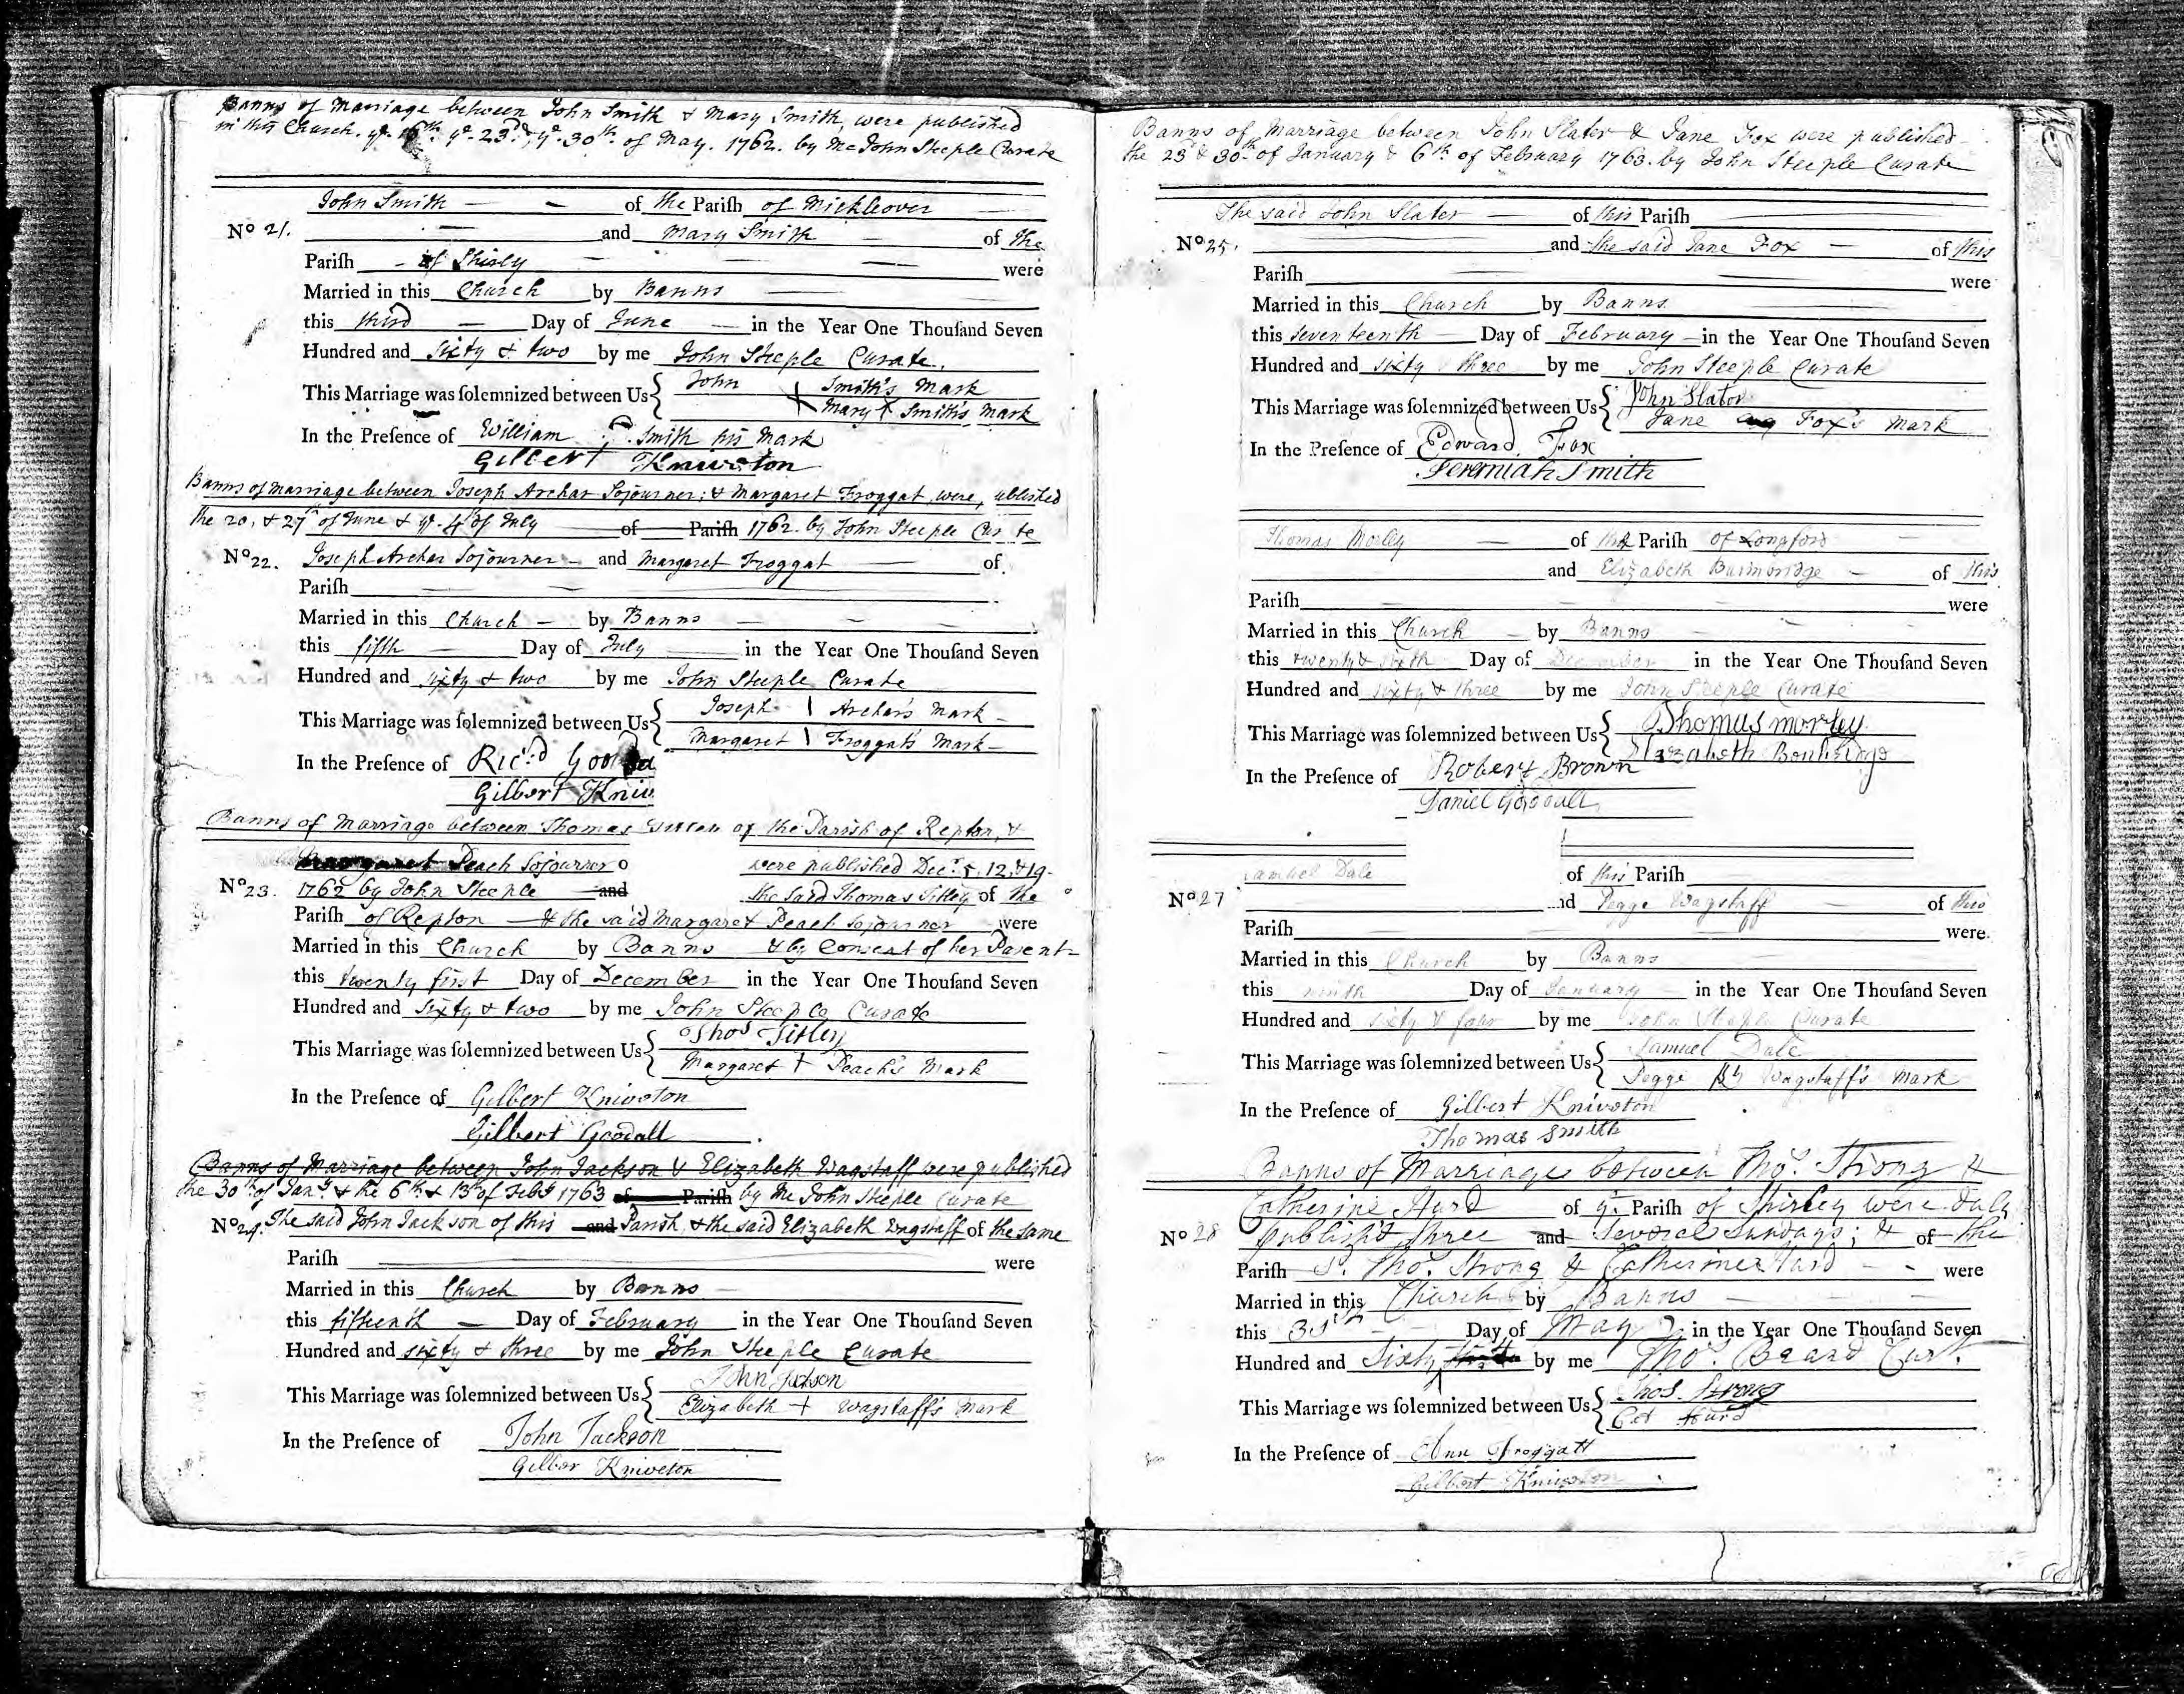 Banns of Marriage between John Smith & Mary Smith, were published
in this Church. ye. 16th. ye. 23d. & ye. 30th. of May. 1762. by Me John Steeple Curate
John Smith of the Pariſh of Mickleover
No 21. and Mary Smith of the
Pariſh of Shirly were
Married in this Church by Banns
this third Day of June in the Year One Thouſand Seven
Hundred and sixty & two by me John Steeple Curate.
This Marriage was ſolemnized between Us { John Smith's Mark
Mary Smith's Mark
In the Preſence of William Smith his Mark
Gilbert Kniveton
Banns of marriage between Joseph Archar Sojourner; & Margaret Froggat, were, ublished
the 20, & 27th of June & ye. 4th of July of Pariſh 1762. by John Steeple Cu te
No 22. Joseph Archar Sojourner and Margaret Froggat of
Pariſh
Married in this Church by Banns
this fifth Day of July in the Year One Thouſand Seven
Hundred and sixty & two by me John Steeple Curate
This Marriage was ſolemnized between Us { Joseph | Archar's Mark
Margaret | Froggat's Mark
In the Preſence of Ric:d
Gilbert Kniv
Banns of Marriage between Thomas of the Parish of Repton, &
Margaret Peach Sojourner were published Decr. 5, 12, & 19.
No 23. 1762 by John Steeple and the said Thomas Titley of the
Pariſh of Repton & the said Margaret Peach Sojourner were
Married in this Church by Banns & by Consent of her Parent
this twenty first Day of December in the Year One Thouſand Seven
Hundred and sixty & two by me John Steeple Curate
This Marriage was ſolemnized between Us { Thos Titley
Margaret + Peach's Mark
In the Preſence of Gilbert Kniveton
Gilbert Goodall
Banns of Marriage between John Jackson & Elizabeth Wagstaff were published
the 30th of Jany. & the 6th & 13th of Feby 1763 of Pariſh by Me John Steeple Curate
No 24. The said John Jackson of this and Parish & the said Elizabeth Wagstaff of the same
Pariſh were
Married in this Church by Banns
this fifteenth Day of February in the Year One Thouſand Seven
Hundred and sixty & three by me John Steeple Curate
This Marriage was ſolemnized between Us { John
Elizabeth + Wagstaff's Mark
In the Preſence of John Jackson
Gilber Kniveton
Banns of Marriage between John Slater & Jane Fox were published
the 23d & 30th of January & 6th of February 1763. by John Steeple Curate
The said John Slater of this Pariſh
No 25. and the said Jane Fox of this
Pariſh were
Married in this Church by Banns
this seventeenth Day of February in the Year One Thouſand Seven
Hundred and sixty three by me John Steeple Curate
This Marriage was ſolemnized between Us { John Slator
Jane Fox's Mark
In the Preſence of Edward Fox
Jeremiah Smith
Thomas Morley of the Pariſh of Longford
and Elizabeth of this
Pariſh were
Married in this Church by Banns
this twenty & sixth Day of December in the Year One Thouſand Seven
Hundred and sixty & three by me John Steeple Curate
This Marriage was ſolemnized between Us { Thomas morley
Elizabeth
In the Preſence of Robert Brown
Daniel Goodall
Samuel Dale of this Pariſh
No 27 nd Pegge Wagstaff of this
Pariſh were
Married in this Church by Banns
this ninth Day of January in the Year One Thouſand Seven
Hundred and sixty & four by me John Steeple Curate
This Marriage was ſolemnized between Us { Samuel Dale
Pegge Wagstaff's Mark
In the Preſence of Gilbert Kniveton
Thomas Smith
Banns of Marriage between Thos. Strong &
Catherine Hurd of ye. Pariſh of Shirley were duly
No 28 publish'd three and several Sundays; & of the
Pariſh Sd. Thos. Strong & Catherine Hurd were
Married in this Church by Banns
this 31st Day of May in the Year One Thouſand Seven
Hundred and Sixty by me Thos. Beard Curt.
This Marriage ws ſolemnized between Us { Thos. Strong
Cat Hurd
In the Preſence of Ann Froggatt
Gilbert Kniveton